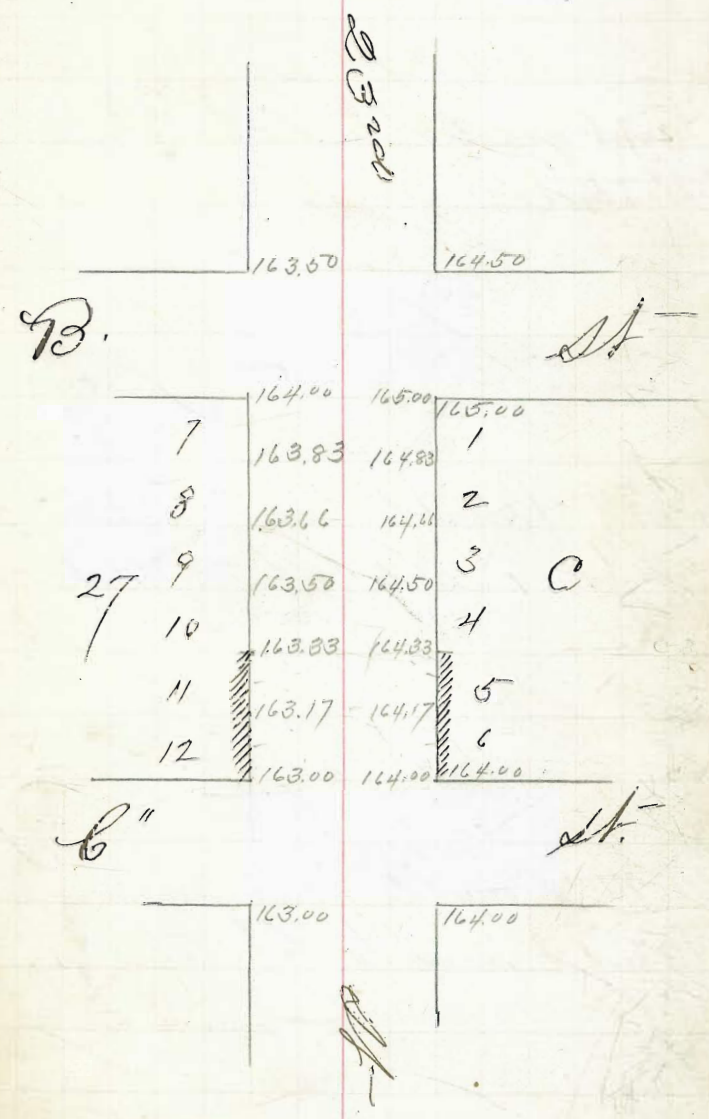 23rd
163.50 164.50
B. St-
164.00 165.00 165.00
7 1
163.83 164.83
8 2
163.66 164.66
9 3
27 163.50 164.50 C
10 4
163.33 164.33
11 5
163.17 164.17
12 6
163.00 164.00 164.00
C" St.-
163.00 164.00
St-